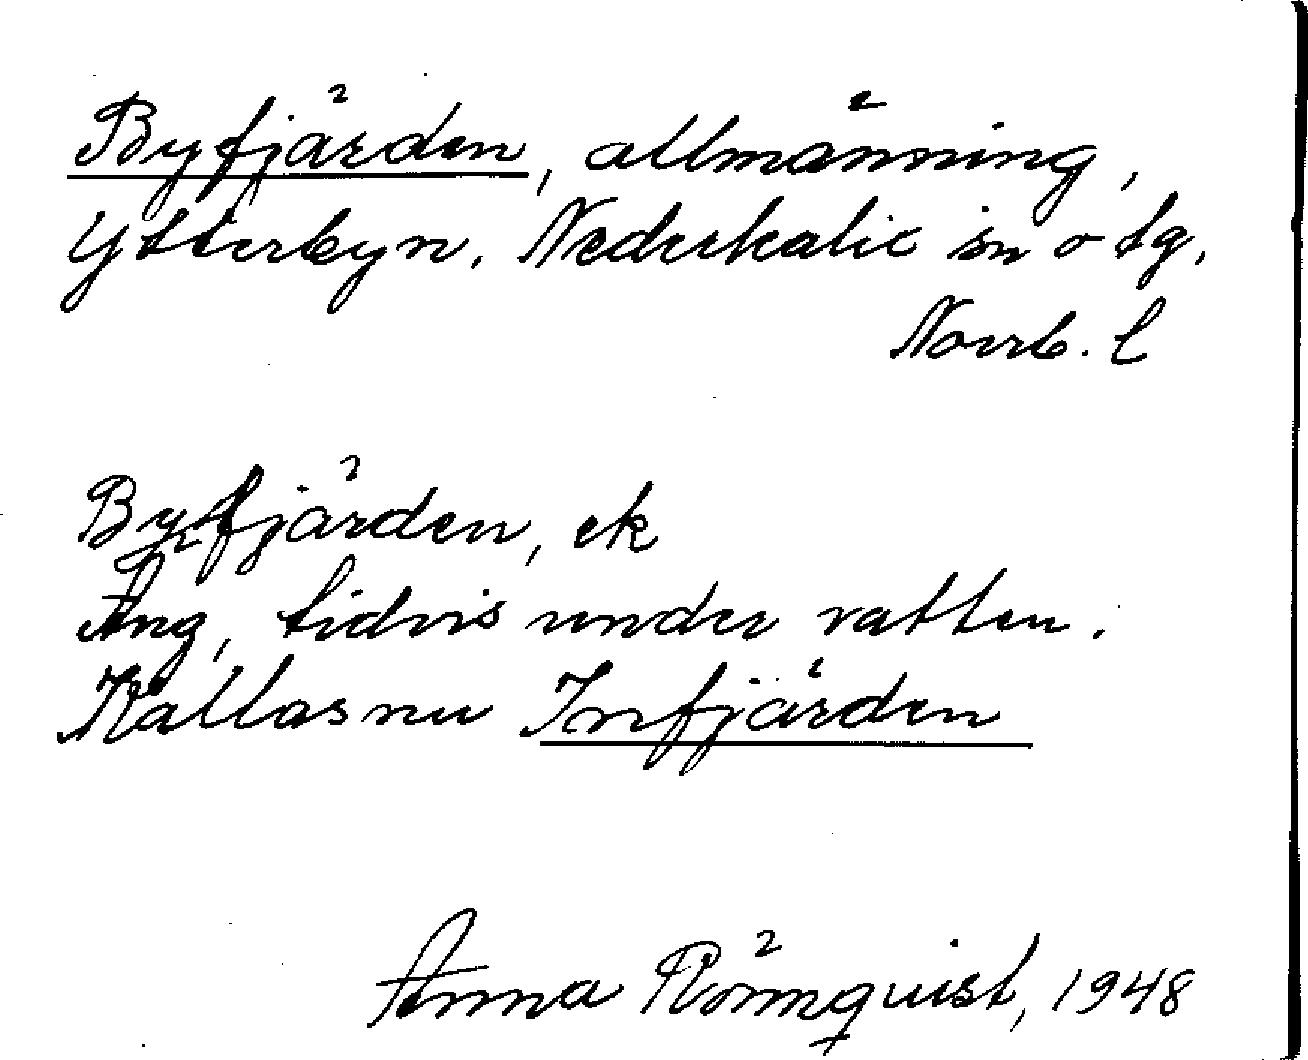 Byfjärden, allmänning,
Ytterbyn, Nederkalix sn o tg,
Norrb. l
Byfjärden, ek
Äng, tidvis under vatten.
Kallas nu Infjärden
Anna Rönnquist, 1948